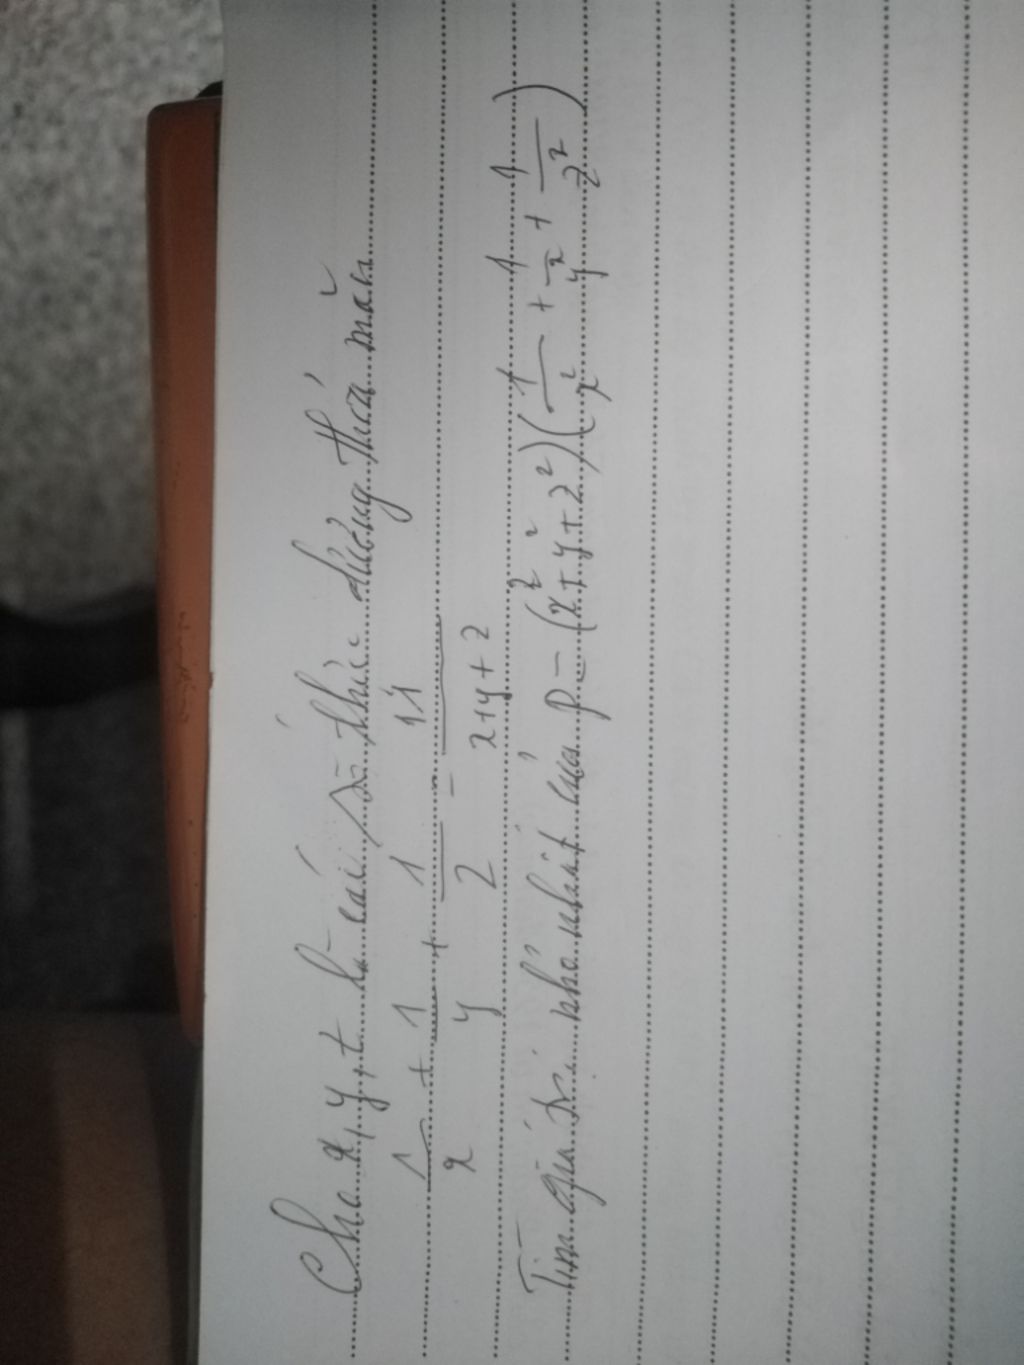 Cho x, y, t là các số thực dương thỏa mãn
1/x + 1/y + 1/z = 11/x+y+z
Tìm giá trị nhỏ nhất của P = (x² + y² + z²)(1/x² + 1/y² + 1/z²)